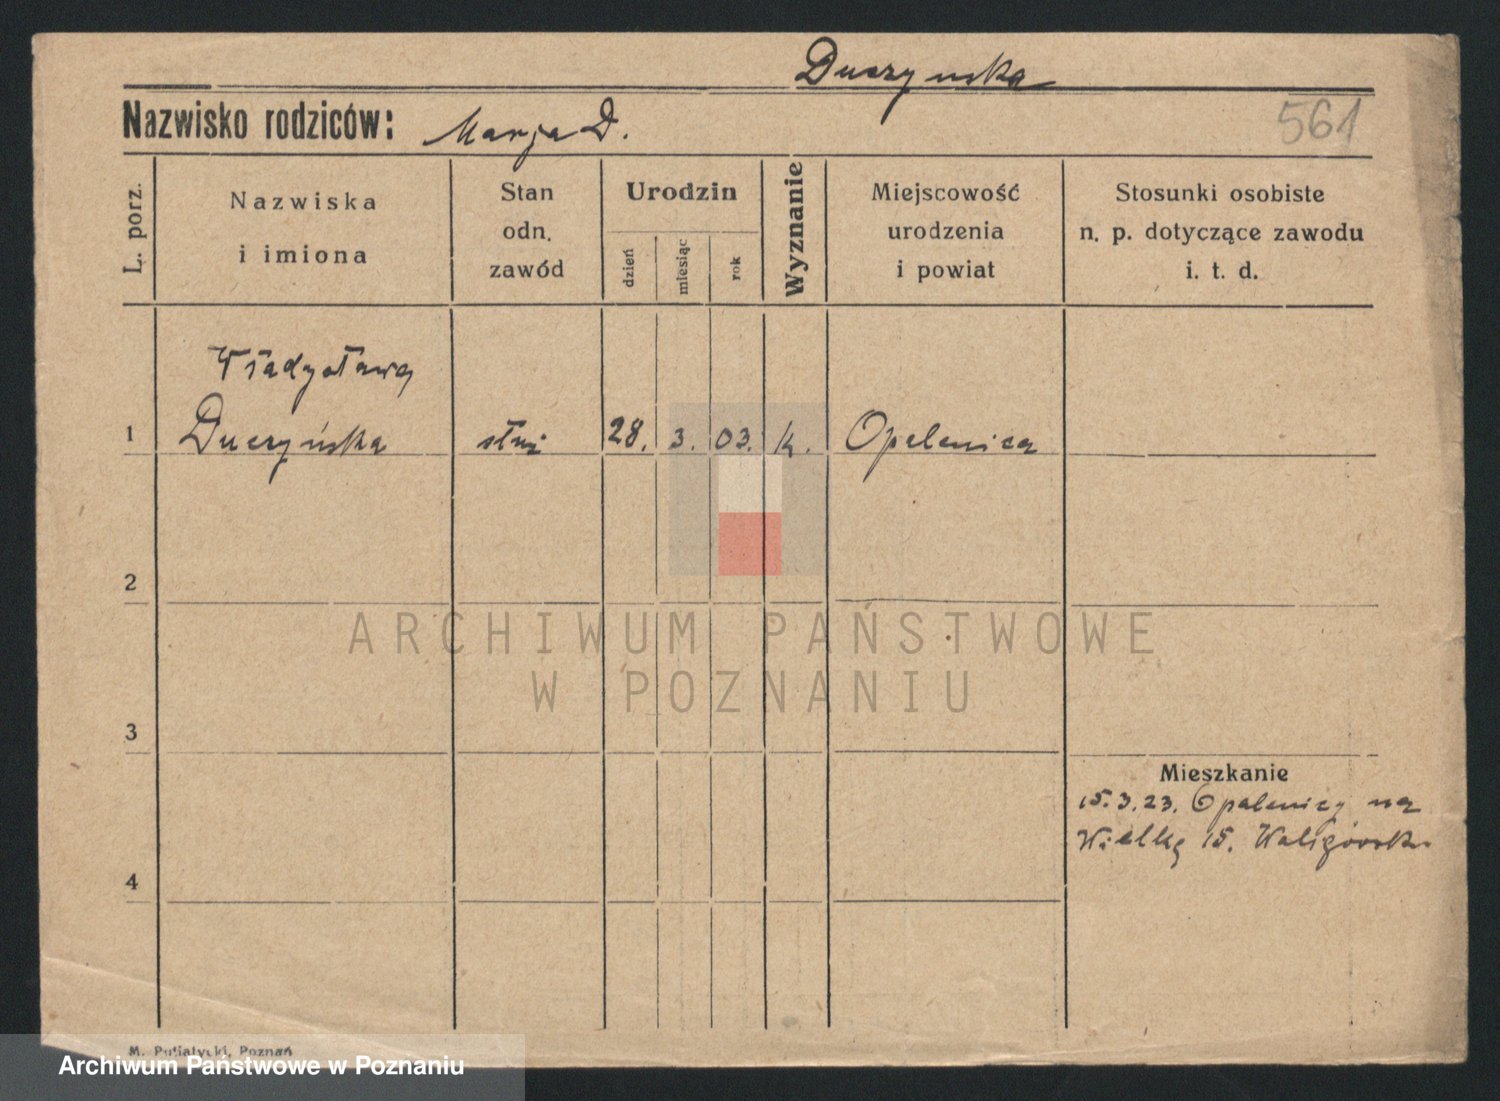 Duczynska
Nazwisko rodziców: Marja D.
561
L. porz.
Nazwiska
i imiona
Stan
odn.
zawód
Urodzin
dzień
miesiąc
rok
Wyznanie
Miejscowość
urodzenia
i powiat
Stosunki osobiste
n. p. dotyczące zawodu
i. t. d.
Władysława
1 Duczyńska służ 28. 3. 03. k. Opalenica
2
ARCHIWUM PAŃSTWOWE
W POZNANIU
3
Mieszkanie
15.3.23. Opalenicy na
Wielkę 15. Waligórsk
4
M. Putiatycki, Poznań
Archiwum Państwowe w Poznaniu